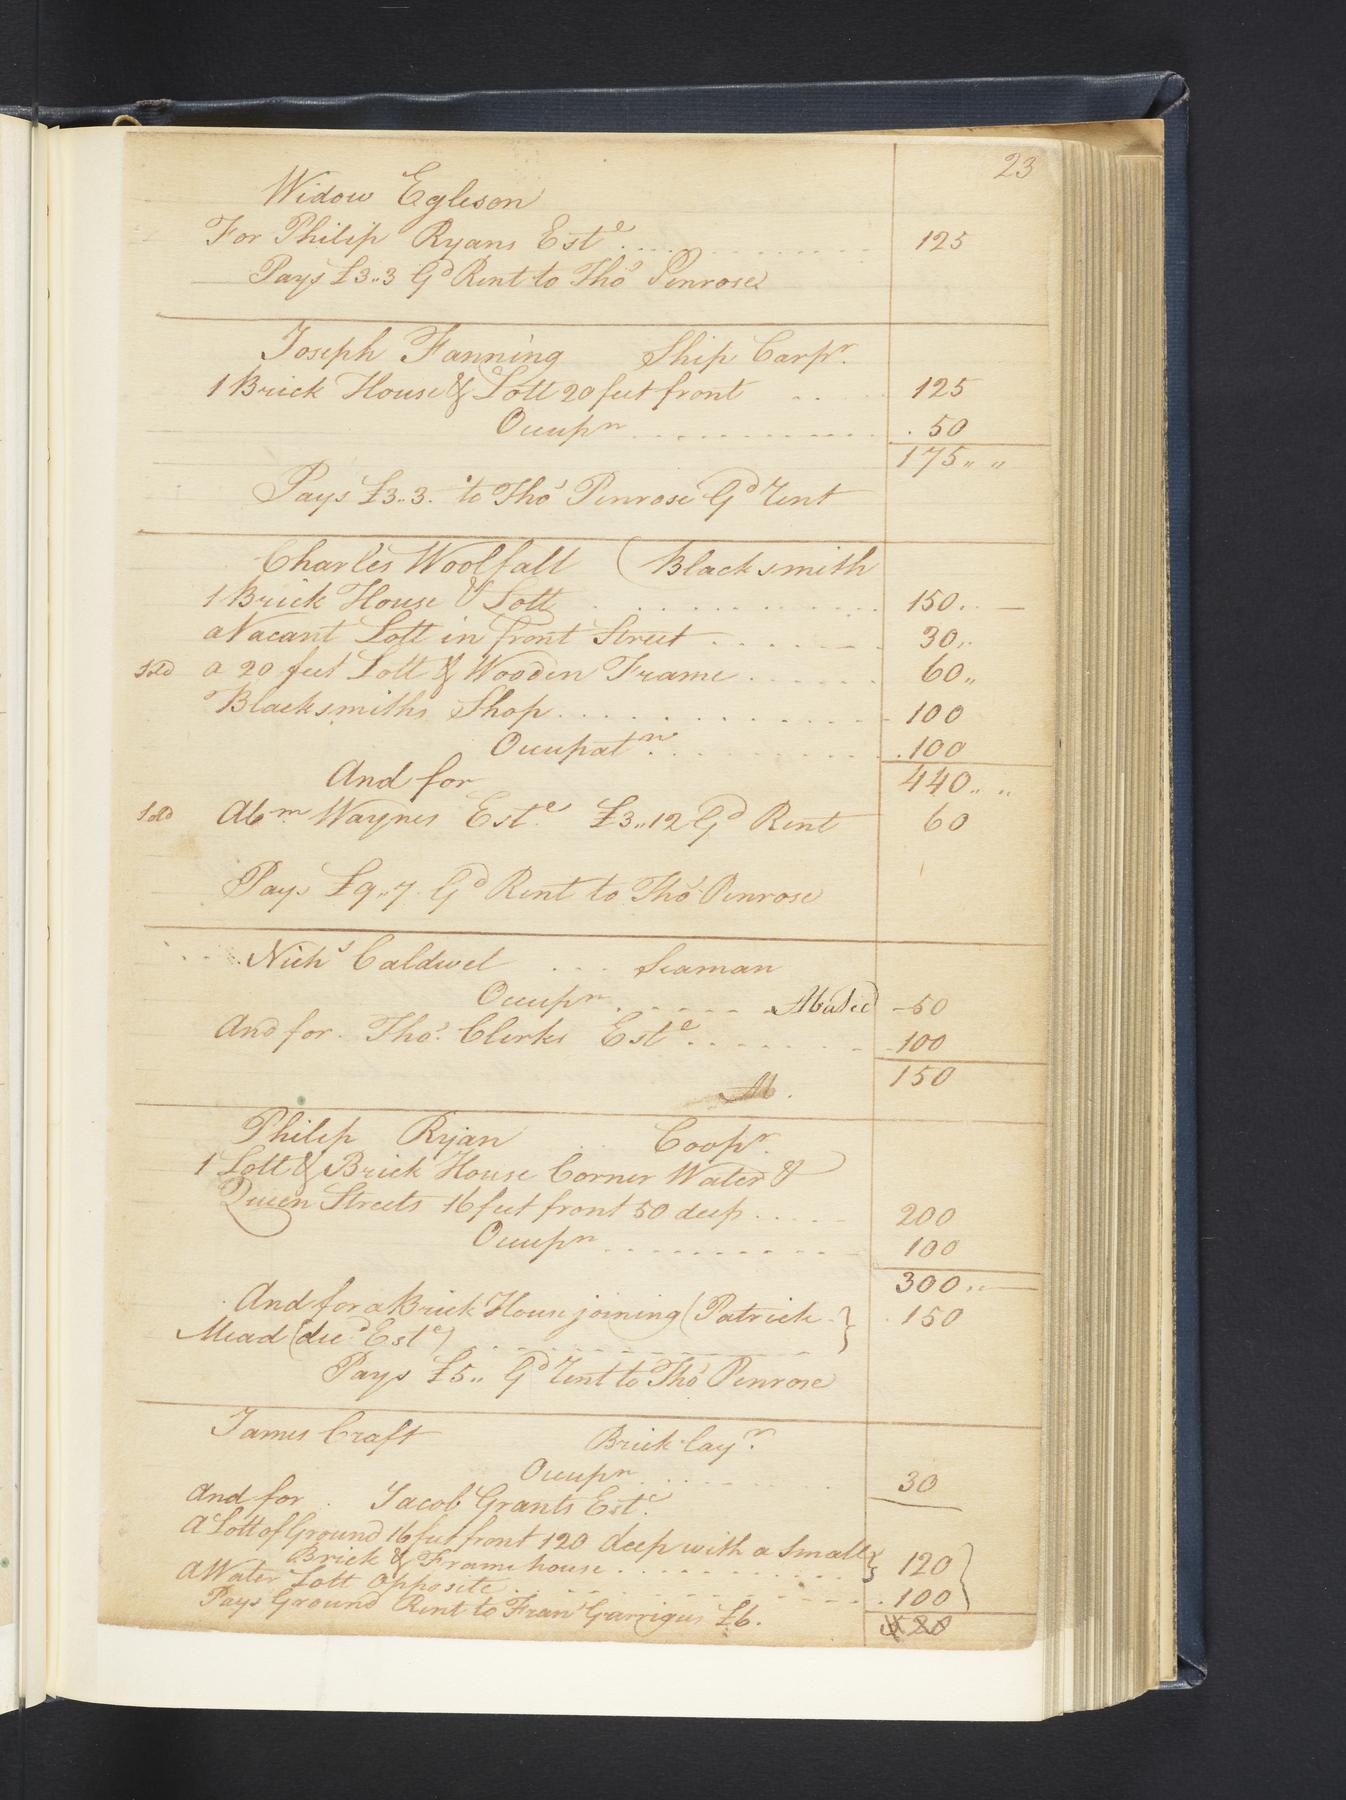 23
Widow Egleson
For Philip Ryans Est.e 125
Pays £3..3 Gd Rent to Thos Penrose
Joseph Fanning Ship Carpr.
1 Brick House & Lott 20 feet front 125
Occupn 50
175 " "
Pays £3..3. to Thos Penrose Gd Rent
Charles Woolfall (Blacksmith
1 Brick House & Lott 150
a Vacant Lott in front Street 30
Sold a 20 feet Lott & Wooden Frame 60
Blacksmiths Shop 100
Occupatn. 100
And for 440 " "
Sold Abm. Waynes Est.e £3..12 Gd Rent 60
Pays £9..7. Gd Rent to Thos Penrose
Nichs Caldwel Seaman
Occupn Abated 50
And for. Thos. Clerks Est.e 100
150
Ab.
Philip Ryan Coopr.
1 Lott & Brick House Corner Water &
Queen Streets 16 feet front 50 deep 200
Occupn 100
300
And for a Brick House joining (Patrick } 150
Mead (decd Est.e)
Pays £5.. Gd Rent to Thos Penrose
James Craft Brick layr.
Occupn 30
And for Jacob Grants Est.e
A Lott of Ground 16 feet front 120 deep with a Small } 120
Brick & Frame house
A Water Lott Opposite 100
Pays Ground Rent to Frans Garrigus £6.